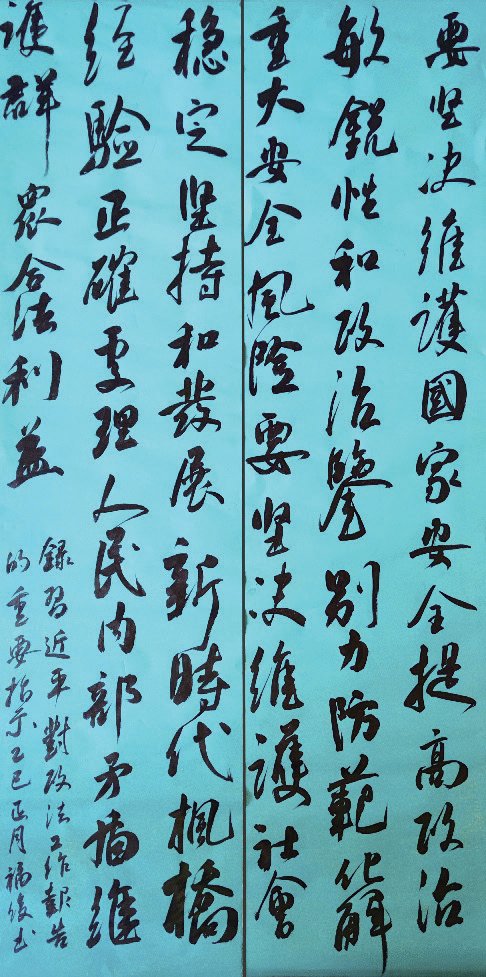 要坚决维護國家安全提高政治
敏銳性和政治鑒别力防範化解
重大安全风险要坚决维護社會
稳定坚持和發展新時代楓橋
经驗正確处理人民内部矛盾維
護群眾合法利益
錄習近平對政法工作報告
的重要指示乙巳正月福俊书